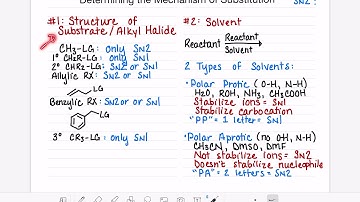 Determining the Mechanism of Substitution
SN2:
#1: Structure of
Substrate/Alkyl Halide
CH3-LG: only SN2
1° CH2R-LG: only SN2
2° CHR2-LG: SN2 or SN1
Allylic RX: SN2 or SN1
LG
Benzylic RX: SN2 or SN1
LG
3° CR3-LG: only SN1
#2: Solvent
Reactant Reactant
Solvent
2 Types of Solvents:
•Polar Protic (O-H, N-H)
H2O, ROH, NH3, CH3COOH
Stabilize ions = SN1
Stabilize carbocation
"PP" = 1 letter = SN1
•Polar Aprotic (no OH, N-H)
CH3CN, DMSO, DMF
Not stabilize ions = SN2
Doesn't stabilize nucleophile
"PA" = 2 letters = SN2